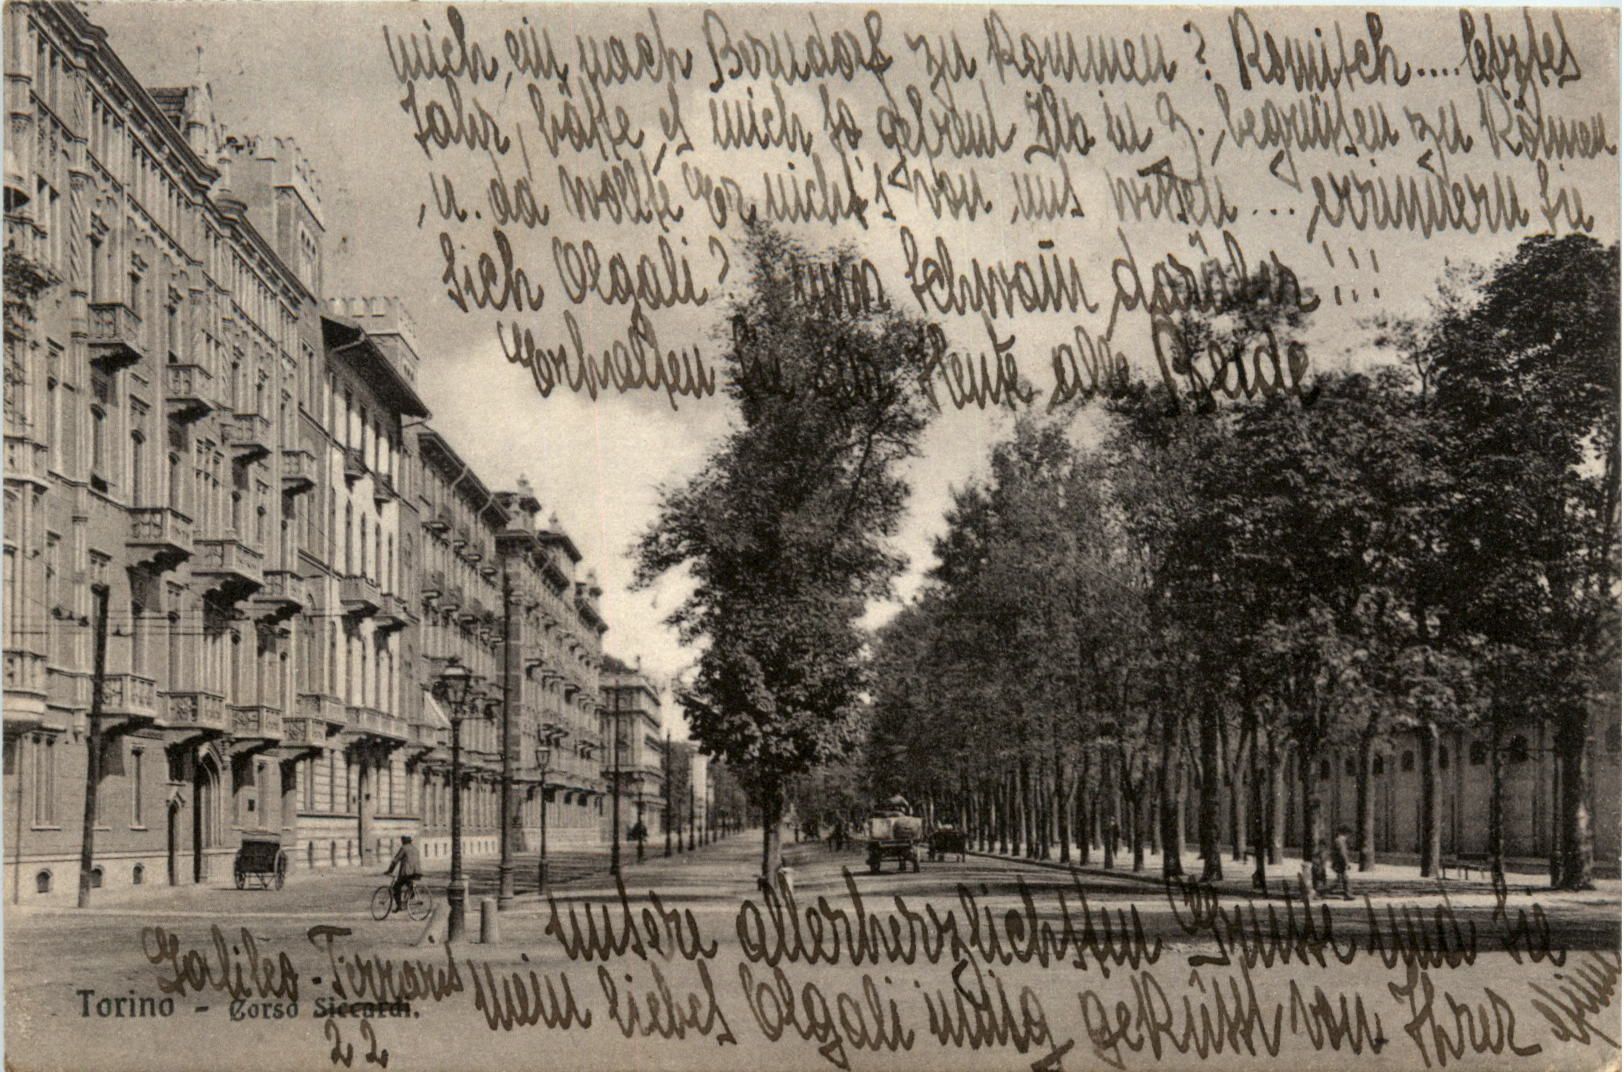 mich, ein nach Berndorf zu kommen? Komisch.... letztes
Jahr, hätte es mich so gefreut Ihn in Z. begrüssen zu können
u. da wollte Er nicht's von uns wissen... errinnern Sie
sich Olgali? nun schwam darüber!!!
Erhalten Sie für Heute alle Beide
unsere allerherzlichsten Grüsse und Sie
mein liebes Olgali innig geküsst von Ihrer
Galileo-Ferraris
Torino - Corso Siccardi.
22